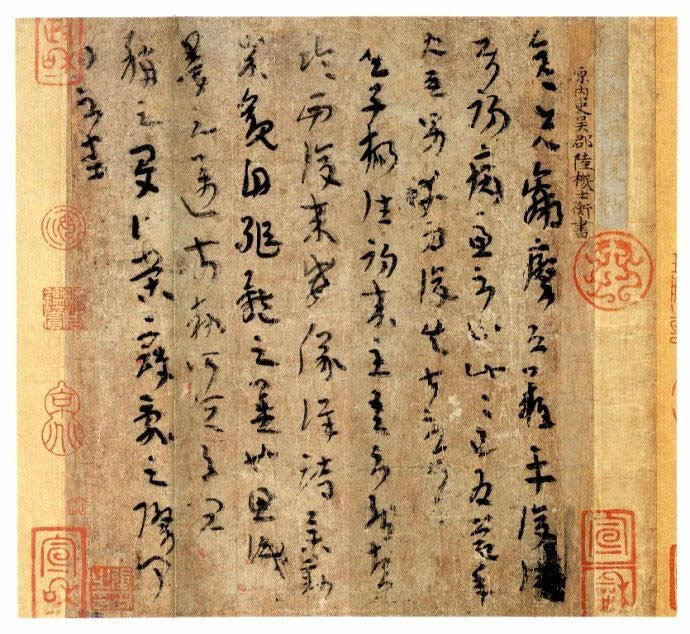 原內史吳郡陸機士衡書
彥先羸瘵恐難平復往屬
初病慮不止此此已為慶承
使唯男幸為復失前憂耳
吳子楊往初來主吾不能盡
臨西復來威儀詳跱舉動
成觀自軀體之美也思識
量之邁前執所恆有宜
稱之夏伯榮寇亂之際聞
問不悉
政和
宣和
宣和